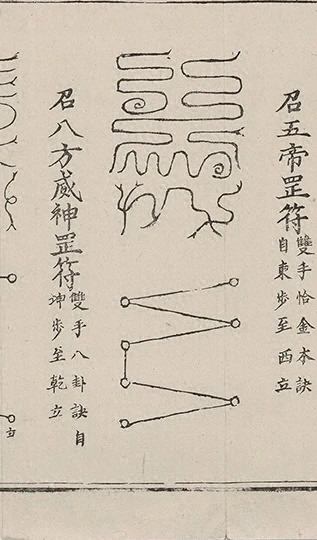 召五帝罡符
雙手恰金本訣
自東步至西立
召八方威神罡符
雙手八卦訣自
坤步至乾立